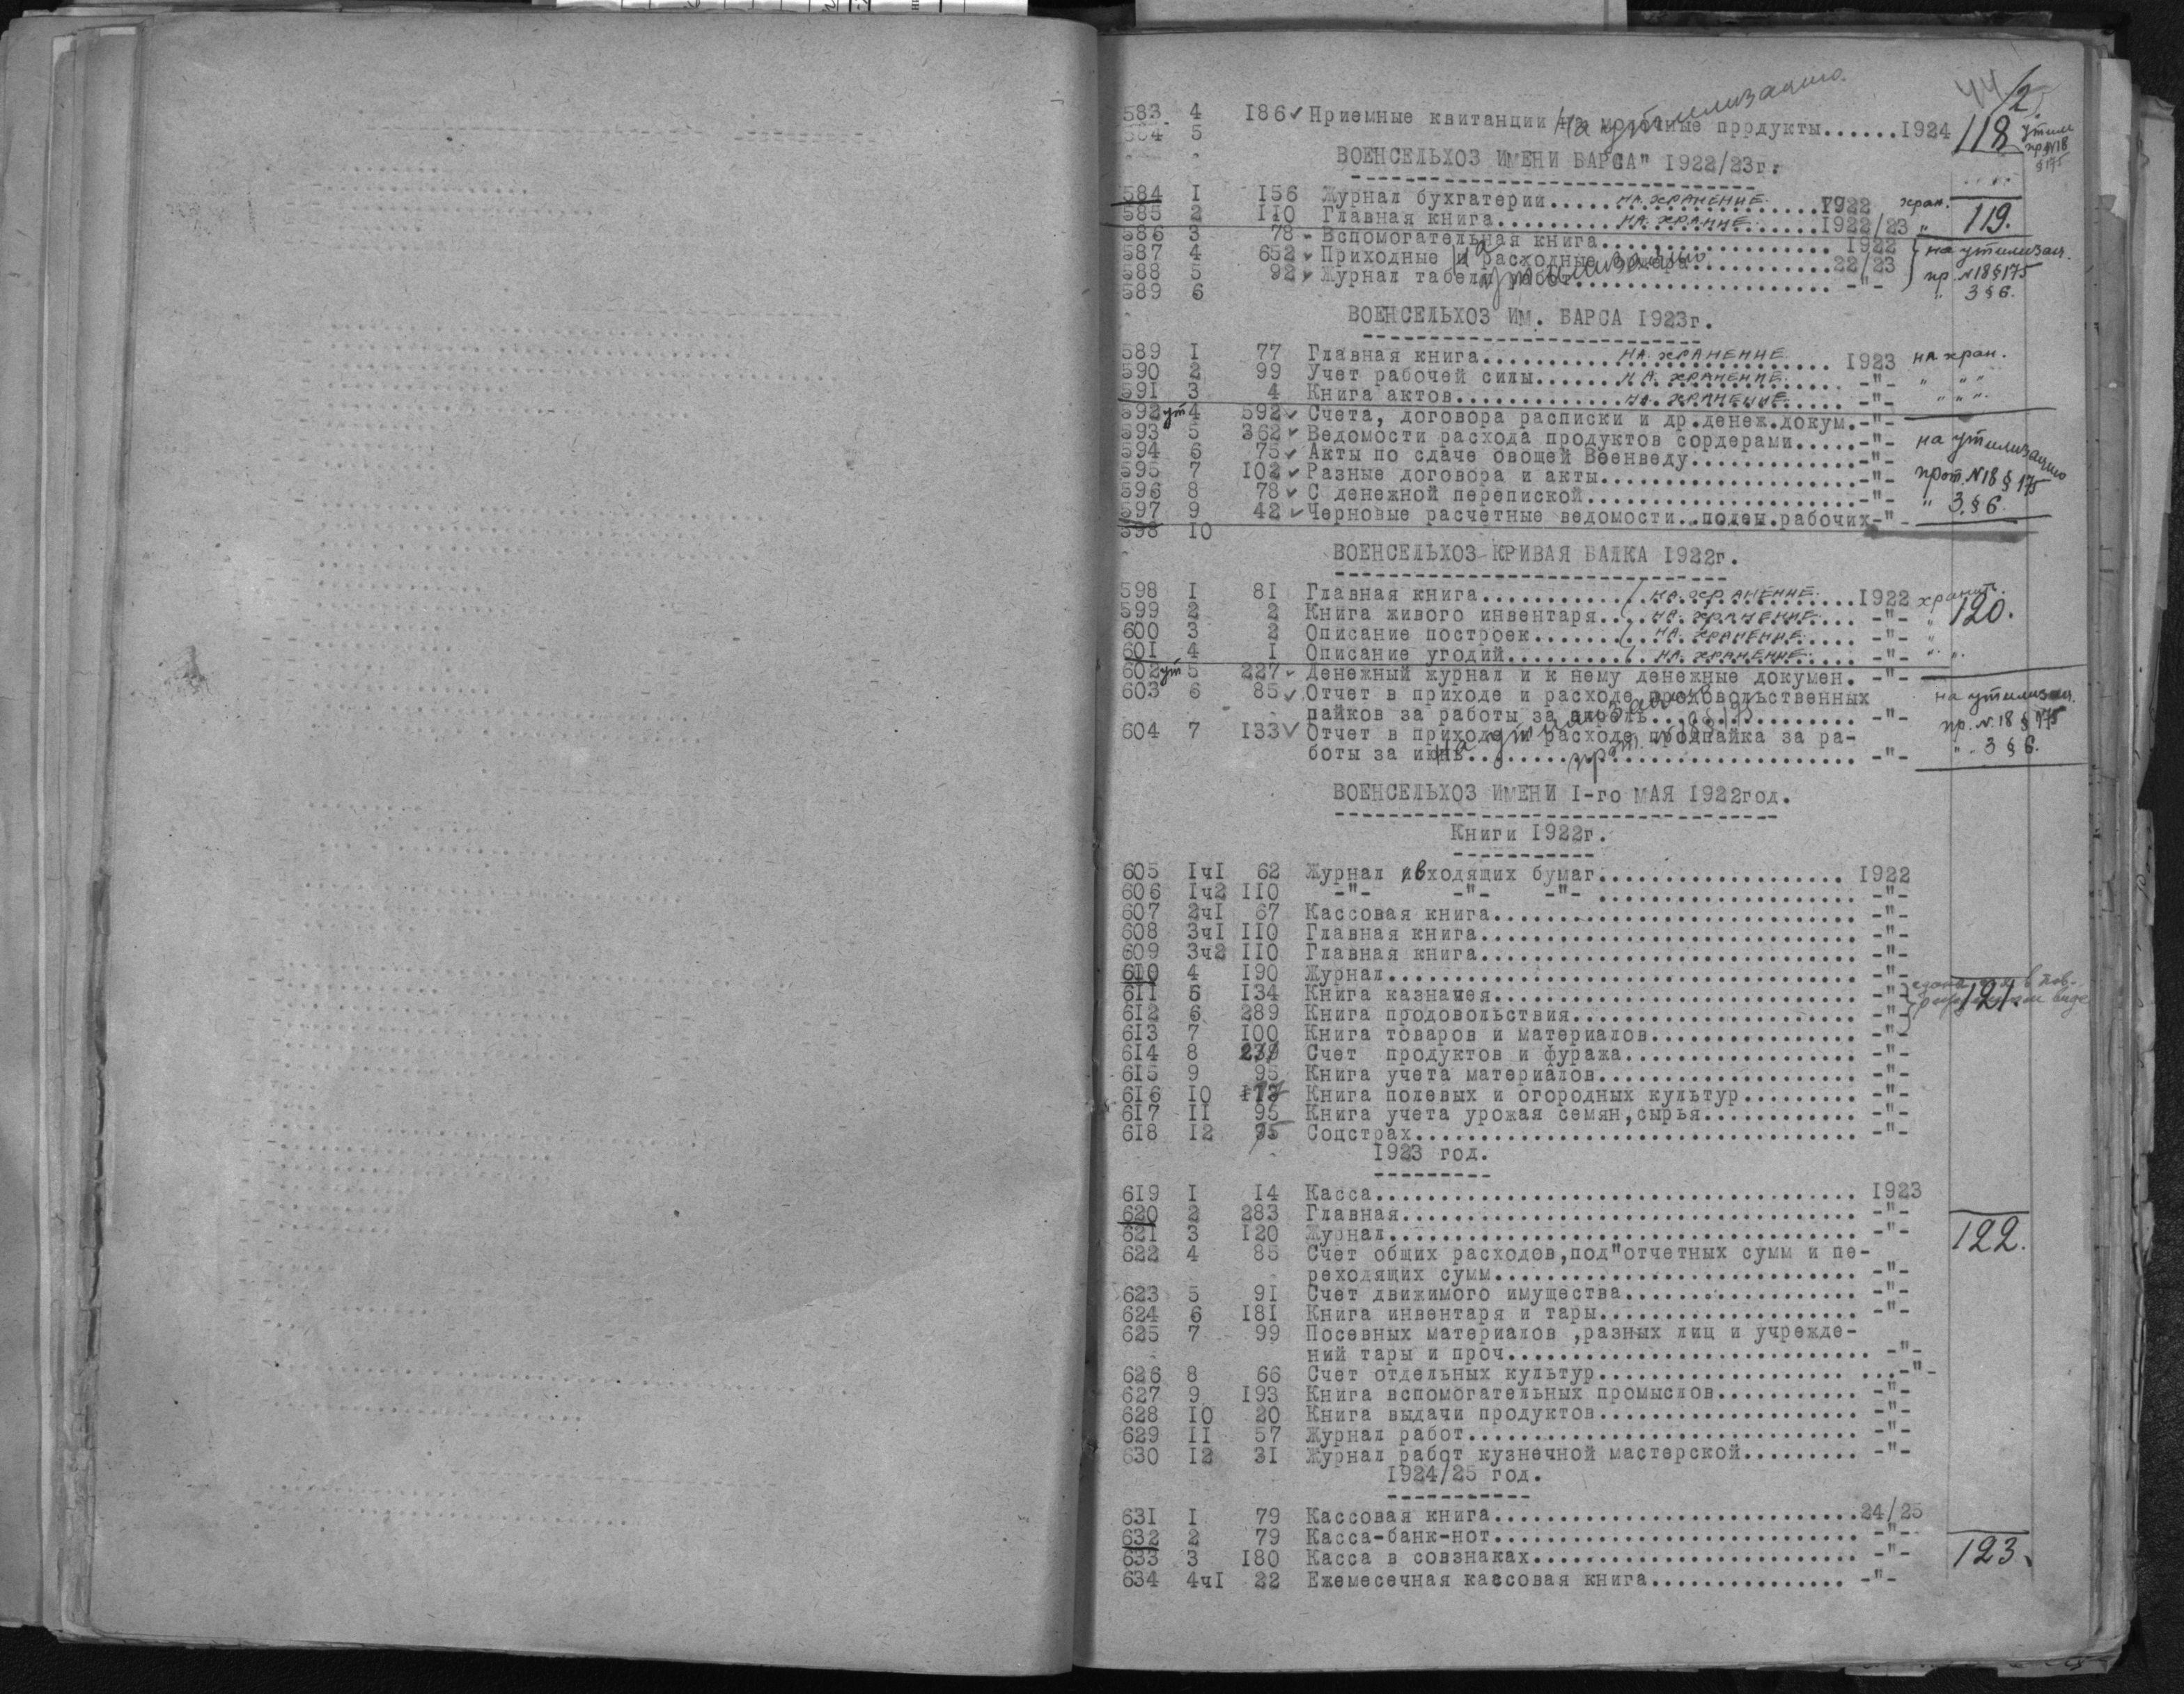 44 /2
583 4 186 ✓ Приемные квитанции на молочные продукты......1924 118 утил
584 5 на утилизацию. пр №18 §175
ВОЕНСЕЛЬХОЗ ИМЕНИ БАРСА" 1922/23г.
584 I 156 Журнал бухгатерии..... НА ХРАНЕНИЕ 1922 хран.
585 2 110 Главная книга.......... НА ХРАНИЕ 1922/23 " 119.
586 3 78 - Вспомогательная книга.................. 1922 на утилизац.
587 4 652 ✓ Приходные и расходные ордера.............22/23 пр. №18 §175
588 5 92 ✓ Журнал табеля работ..................... -"- " 3 § 6.
589 6 на утилизацию
ВОЕНСЕЛЬХОЗ ИМ. БАРСА 1923г.
589 I 77 Главная книга.......... НА ХРАНЕНИЕ 1923 на хран.
590 2 99 Учет рабочей силы...... НА ХРАНЕНИЕ -"- " " "
591 3 4 Книга актов............. НА ХРАНЕНИЕ -"- " " "
592 ут 4 592 ✓ Счета, договора расписки и др.денеж.докум.-"-
593 5 362 ✓ Ведомости расхода продуктов сордерами.....-"- на утилизацию
594 6 75 ✓ Акты по сдаче овощей Военведу.............-"-
595 7 102 ✓ Разные договора и акты....................-"- прот. №18 § 175
596 8 78 ✓ С денежной перепиской.....................-"- " 3. § 6.
597 9 42 ✓ Черновые расчетные ведомости..поден.рабочих-"-
598 10
ВОЕНСЕЛЬХОЗ КРИВАЯ БАЛКА 1922г.
598 I 81 Главная книга........... НА ХРАНЕНИЕ 1922 хранит.
599 2 2 Книга живого инвентаря... НА ХРАНЕНИЕ -"- " 120.
600 3 2 Описание построек....... НА ХРАНЕНИЕ -"- "
601 4 I Описание угодий.......... НА ХРАНЕНИЕ -"- " "
602 ут 5 227 - Денежный журнал и к нему денежные докумен. -"-
603 6 85 ✓ Отчет в приходе и расходе продовольственных на утилизац.
пайков за работы за апрель................ -"- пр. №18 § 175
604 7 133 ✓ Отчет в приходе и расходе продпайка за ра- " 3 § 6.
боты за июнь.............................. -"-
на утилизацию прот. №18 § 175
ВОЕНСЕЛЬХОЗ ИМЕНИ I-го МАЯ 1922год.
Книги 1922г.
605 Iч1 62 Журнал входящих бумаг................... 1922
606 Iч2 110 -"- -"- -"- .................... -"-
607 2ч1 67 Кассовая книга............................ -"-
608 3ч1 110 Главная книга............................. -"-
609 3ч2 110 Главная книга............................. -"-
610 4 190 Журнал.................................... -"-
611 5 134 Книга казначея............................ -"- 121.
612 6 289 Книга продовольствия...................... -"-
613 7 100 Книга товаров и материалов................ -"-
614 8 239 Счет продуктов и фуража.................. -"-
615 9 95 Книга учета материалов.................... -"-
616 10 Книга полевых и огородных культур......... -"-
617 11 95 Книга учета урожая семян,сырья............ -"-
618 12 95 Соцстрах.................................. -"-
1923 год.
619 I 14 Касса..................................... 1923
620 2 283 Главная................................... -"-
621 3 120 Журнал.................................... -"- 122.
622 4 85 Счет общих расходов,под"отчетных сумм и пе-
реходящих сумм............................ -"-
623 5 91 Счет движимого имущества.................. -"-
624 6 181 Книга инвентаря и тары.................... -"-
625 7 99 Посевных материалов ,разных лиц и учрежде-
ний тары и проч............................ -"-
626 8 66 Счет отдельных культур.................... ...-"-
627 9 193 Книга вспомогательных промыслов........... -"-
628 10 20 Книга выдачи продуктов.................... -"-
629 11 57 Журнал работ.............................. -"-
630 12 31 Журнал работ кузнечной мастерской......... -"-
1924/25 год.
631 I 79 Кассовая книга............................24/25
632 2 79 Касса-банк-нот............................ -"-
633 3 180 Касса в совзнаках......................... -"- 123.
634 4ч1 22 Ежемесечная кассовая книга............... -"-